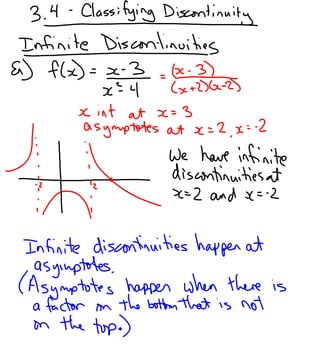 3.4 - Classifying Discontinuity
Infinite Discontinuities
Ex) f(x) = x-3 / x²-4 = (x-3) / (x+2)(x-2)
x int at x=3
asymptotes at x=2, x=-2
-2 2
We have infinite
discontinuities at
x=2 and x=-2
Infinite discontinuities happen at
asymptotes.
(Asymptotes happen when there is
a factor on the bottom that is not
on the top.)